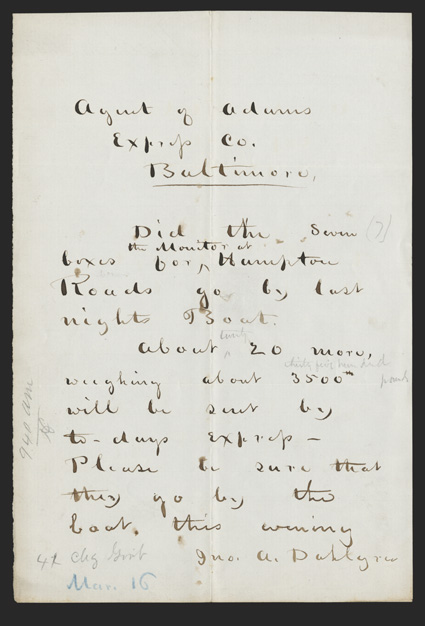 Agent of Adams
Express Co.
Baltimore,
Did the Seven (7)
the Monitor at
boxes for, Hampton
Roads go by last
nights Boat.
twenty
About 20 more,
thirty five hundred
weighing about 3500 lbs
pounds
will be sent by
to-days Express –
Please be sure that
they go by the
boat, this evening
Jno. A. Dahlgren
940 am
42 Chg Govt
Mar. 16